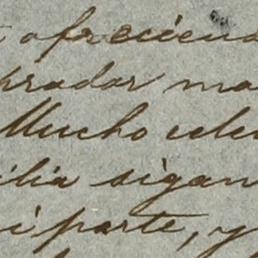 ofreciend
prador ma
Mucho cele
ilia sigan
i parte, y